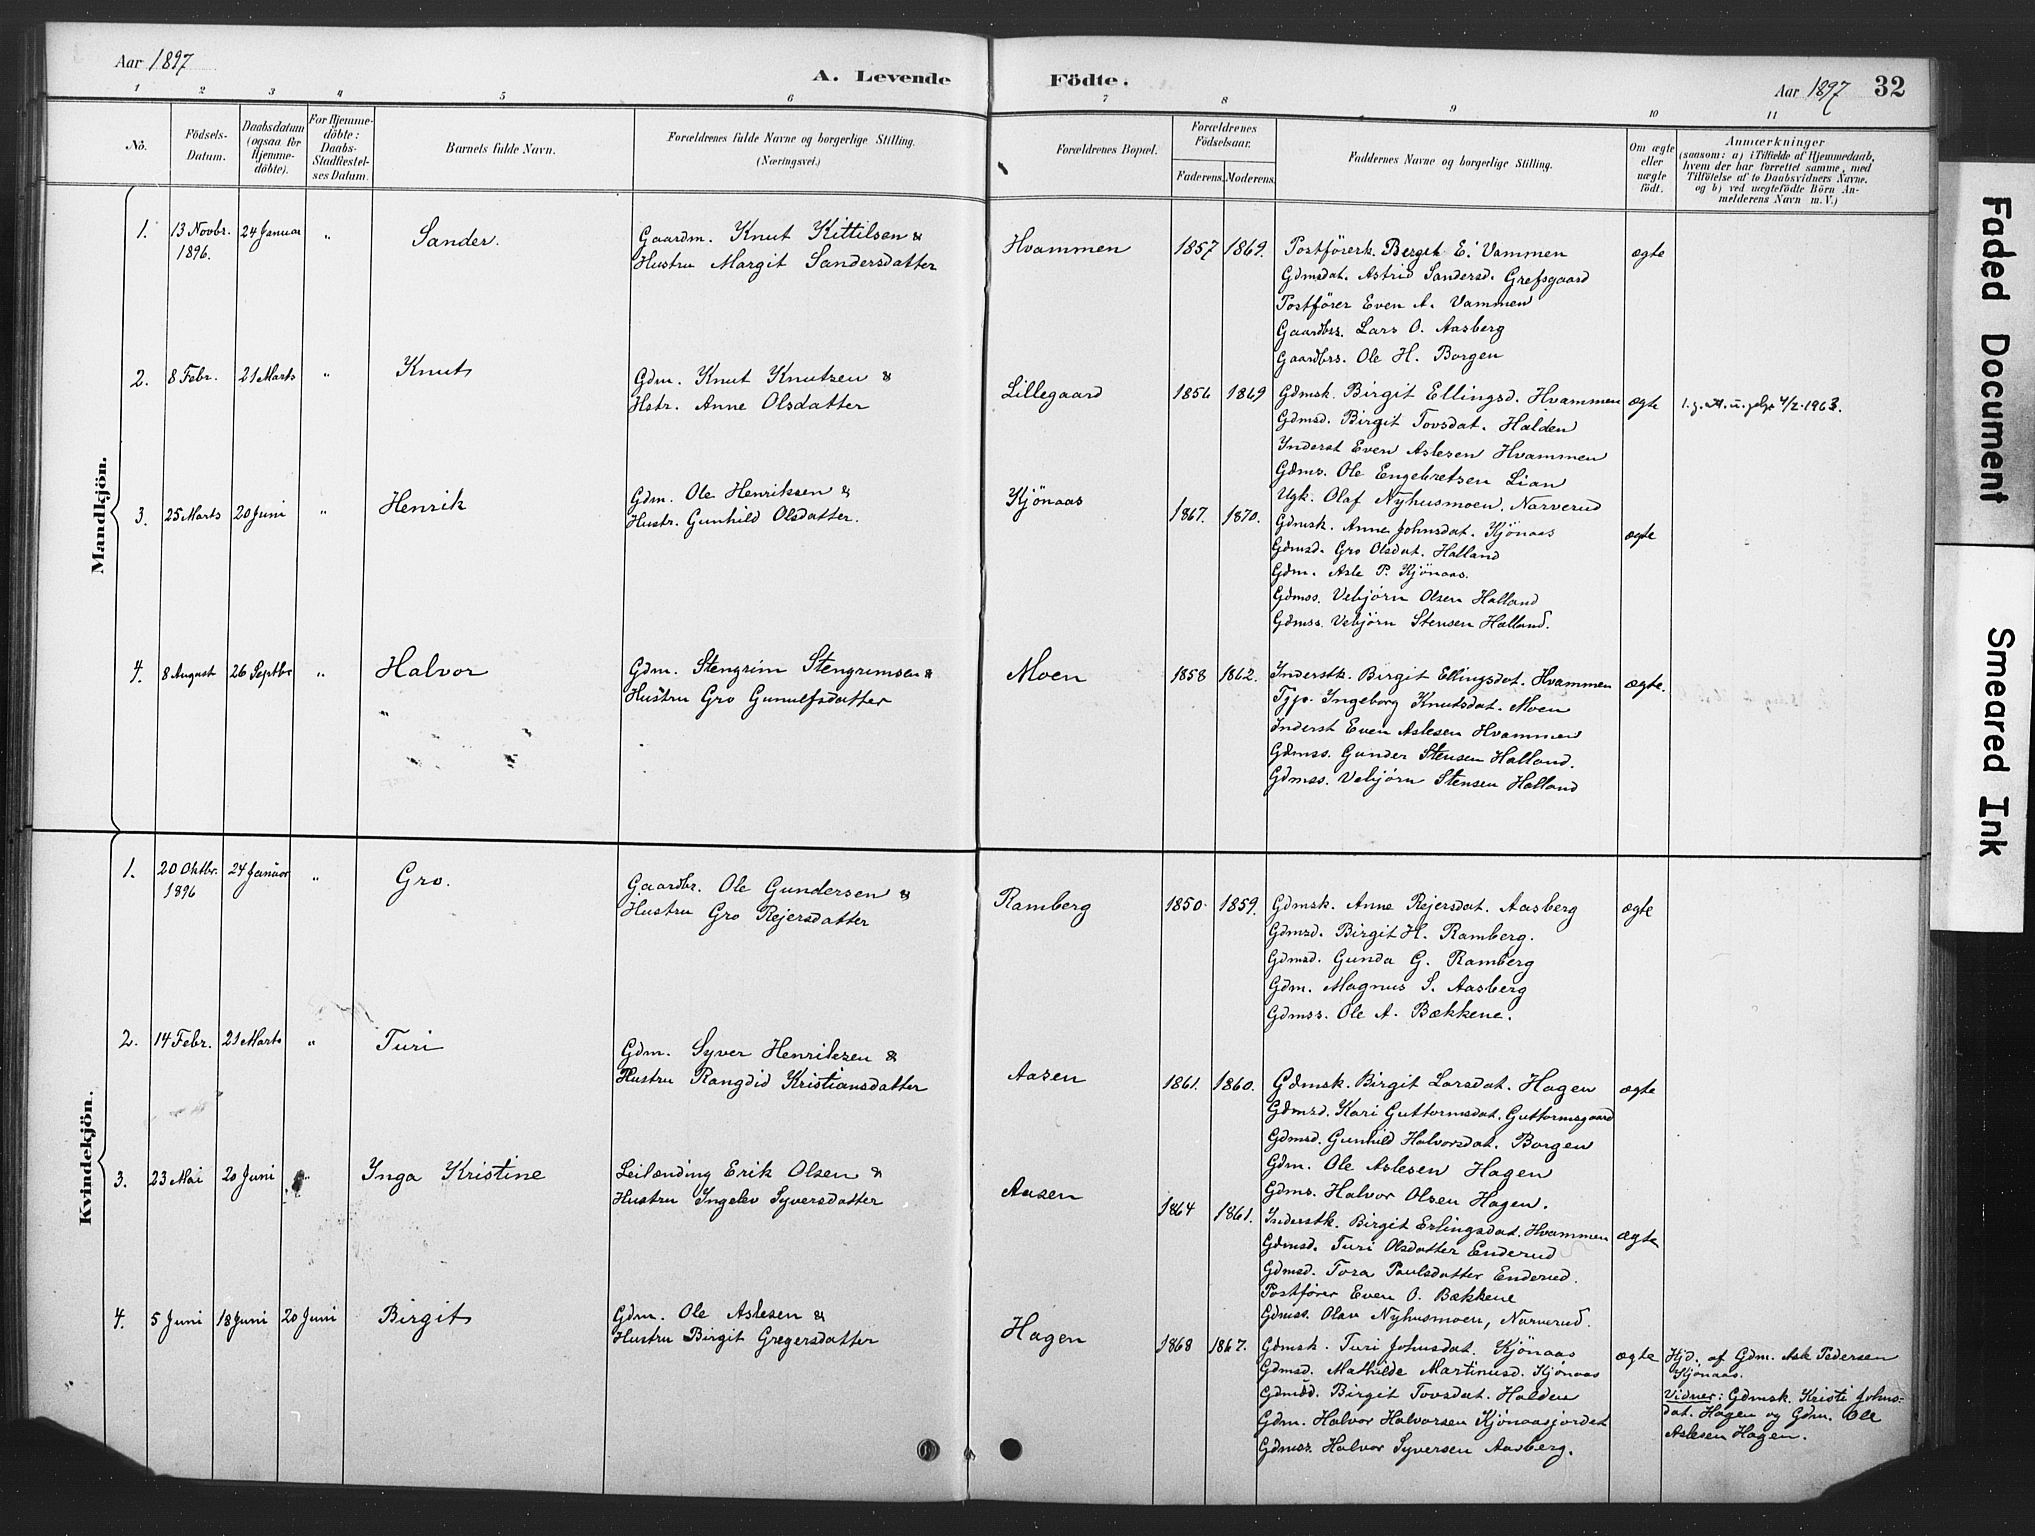 Aar 1897
A. Levende Födte.
Aar 1897 32
1 2 3 4 5 6 7 8 9 10 11
Nò.
Födsels-Datum.
Daabsdatum (ogsaa for Hjemme-döbte).
For Hjemme-döbte: Daabs-Stadfæstelses Datum.
Barnets fulde Navn.
Forældrenes fulde Navne og borgerlige Stilling. (Næringsvei.)
Forældrenes Bopæl.
Forældrenes Födselsaar.
Faderens. Moderens.
Faddernes Navne og borgerlige Stilling.
Om ægte eller uægte födt.
Anmærkninger
(saasom: a) i Tilfælde af Hjemmedaab,
hvem der har forrettet samme, med
Tilföielse af to Daabsvidners Navne.
og b) ved uægtefödte Börn An-
melderens Navn m. V.)
Mandkjön.
1. 13 Novbr. 1896. 24 Januar " Sander.
Gaardm. Knut Kittilsen &
Hustru Margit Sandersdatter
Hvammen 1857 1869.
Postförerk. Bergit E. Vammen
Gdmsdat. Astrid Sandersd. Grefsgaard
Postförer Even A. Vammen
Gaardbrs. Lars O. Aasberg
Gaardbrs. Ole H. Borgen
ægte
2. 8 Febr. 21 Marts " Knut
Gdm. Knut Knutsen &
Hstr. Anne Olsdatter
Lillegaard 1856 1869
Gdmsk. Birgit Ellingsd. Hvammen
Gdmsd. Birgit Tovsdat. Halden
Inderst Even Aslesen Hvammen
Gdms. Ole Engebretsen Lian
Ugk. Olaf Nyhusmoen, Narverud
ægte
4/2-1963.
3. 25 Marts 20 Juni " Henrik
Gdm. Ole Henriksen &
Hustr. Gunhild Olsdatter.
Kjönaas 1867. 1870.
Gdmsk. Anne Johnsdat. Kjönaas
Gdmsd. Gro Olsdat. Halland
Gdm. Asle P. Kjönaas.
Gdmss. Vebjörn Olsen Halland
Gdmss. Vebjörn Stensen Halland.
ægte
4. 8 August 26 Septbr " Halvor
Gdm. Stengrim Stengrimsen &
Hustru Gro Gunulfsdatter
Moen 1858 1862.
Inderstk. Birgit Ellingsdat. Hvammen
Tjp. Ingeborg Knutsdat. Moen
Inderst Even Aslesen Hvammen
Gdmss. Gunder Stensen Halland.
Gdmss. Vebjörn Stensen Halland
ægte.
Kvindekjön.
1. 20 Oktbr. 1896 24 Januar " Gro.
Gaardbr. Ole Gundersen &
Hustru Gro Rejersdatter
Ramberg 1850. 1859.
Gdmsk. Anne Rejersdat. Aasberg
Gdmsd. Birgit H. Ramberg.
Gdmsd. Gunda G. Ramberg
Gdm. Magnus S. Aasberg
Gdmss. Ole A. Bækkene.
ægte
2. 14 Febr. 21 Marts " Turi
Gdm. Syver Henriksen &
Hustru Rangdid Kristiansdatter
Aasen 1861. 1860.
Gdmsk. Birgit Larsdat. Hagen
Gdmsd. Kari Guttormsdat. Guttormsgaard
Gdmsd. Gunhild Halvorsdat. Borgen
Gdm. Ole Aslesen Hagen
Gdms. Halvor Olsen Hagen.
ægte
3. 23 Mai 20 Juni " Inga Kristine
Leilænding Erik Olsen &
Hustru Ingelev Syversdatter
Aasen 1864 1861.
Inderstk. Birgit Erlingsdat. Hvammen
Gdmsd. Turi Olsdatter Enderud
Gdmsd. Tora Paulsdatter Enderud.
Postförer Even O. Bækkene
Gdmss. Olav Nyhusmoen, Narverud.
ægte
4. 5 Juni 18 Juni 20 Juni Birgit
Gdm. Ole Aslesen &
Hustru Birgit Gregersdatter
Hagen 1868 1867.
Gdmsk. Turi Johnsdat. Kjönaas
Gdmsd. Mathilde Martinusd. Kjönaas
Gdmsd. Birgit Tovsdat. Halden
Gdm. Halvor Halvorsen Kjönaasjordet
Gdmss. Halvor Syversen Aasberg.
ægte
Hjd. af Gdm. Asle Pedersen
Kjönaas.
Vidner: Gdmsk. Kristi Johns-
dat. Hagen og Gdm. Ole
Aslesen Hagen.
Faded Document
Smeared Ink